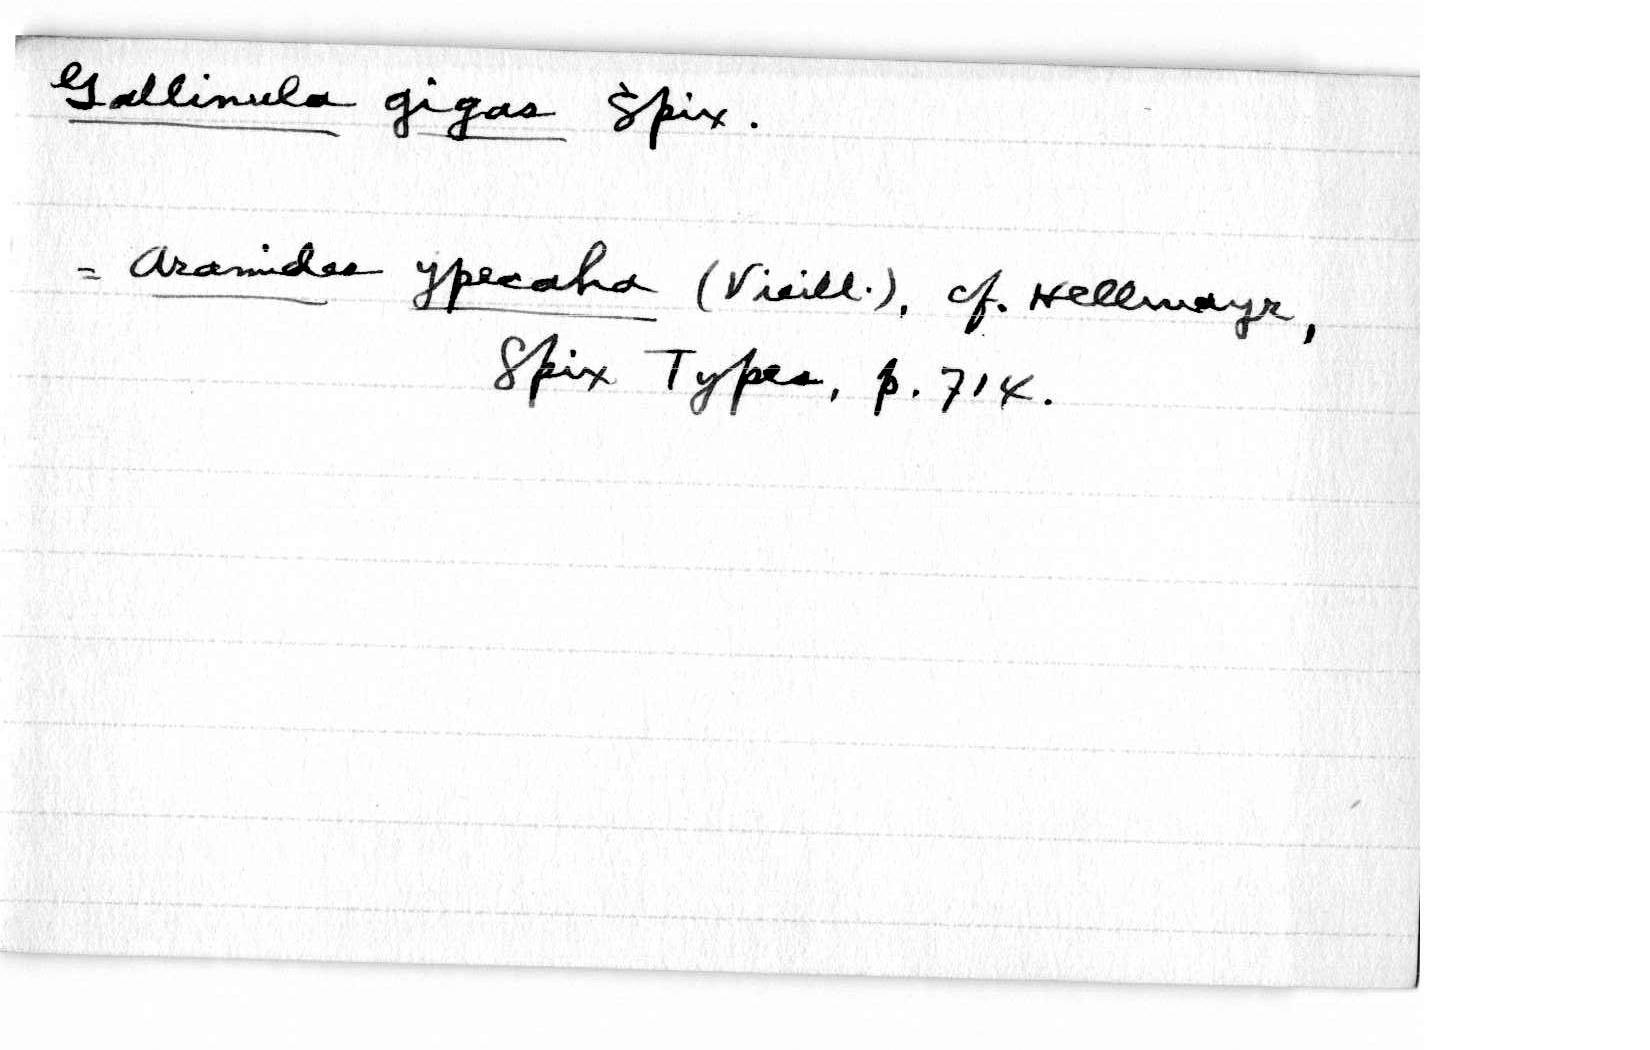 Gallinula gigas Spix.
= Aramides ypecaha (Vieill.), cf. Hellmayr,
Spix Types, p. 714.